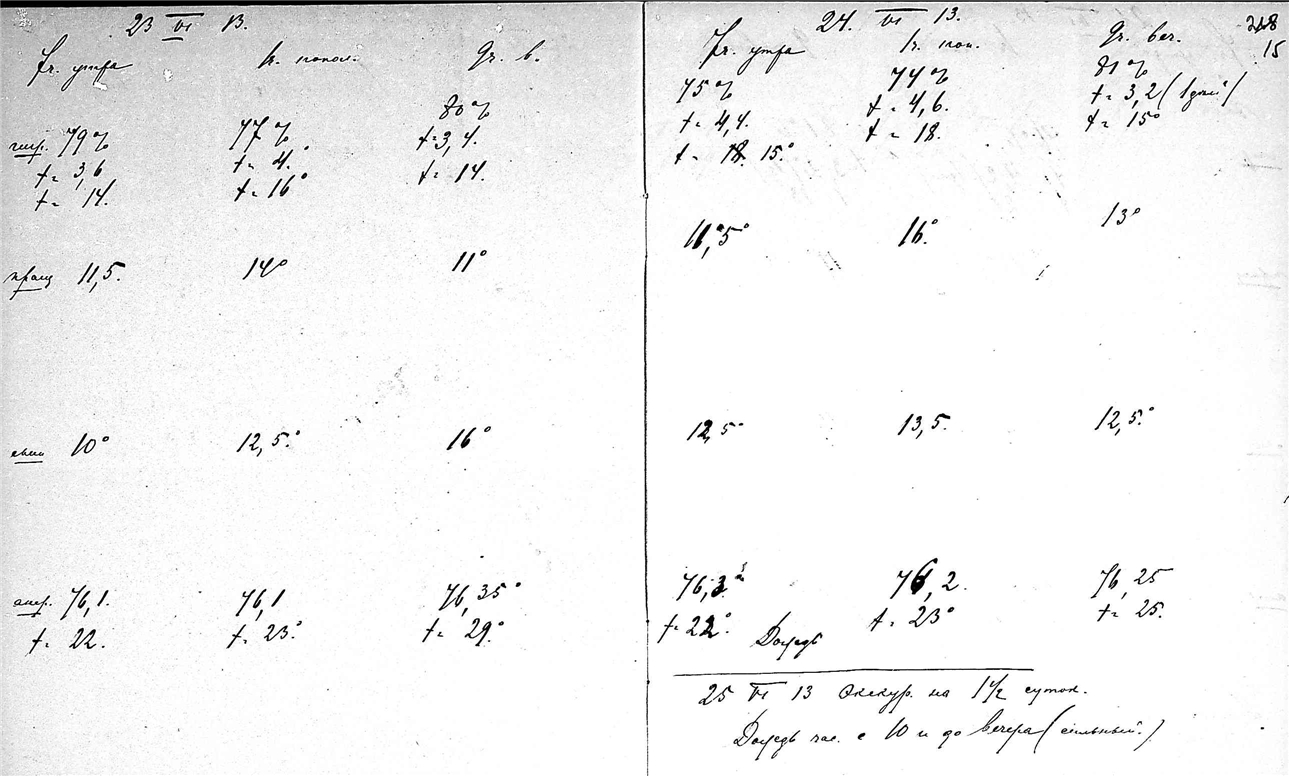 23 VI 13.
7ч. утра 1ч. попол. 9ч. в.
80%
гигр. 79% 77% t=3,4.
t=3,6 t=4.° t=14.
t=14. t=16°
11,5. 14° 11°
10° 12,5.° 16°
76,1. 76,1 76,35°
t=22. t=23.° t=29.°
24. VI 13.
248
15
7ч. утра 1ч. поп. 9ч. веч.
75% 74% 81%
t=4,4. t=4,6. t=3,2
t= 18. 15.° t=18. t=15°
11,5° 16.° 13°
12,5° 13,5. 12,5.°
76,3 76,2. 76,25
t=22.° Дождь t=23° t=25.
25 VI 13 Экскур. на 1 1/2 суток.
Дождь час. с 10 и до вечера (сильный.)